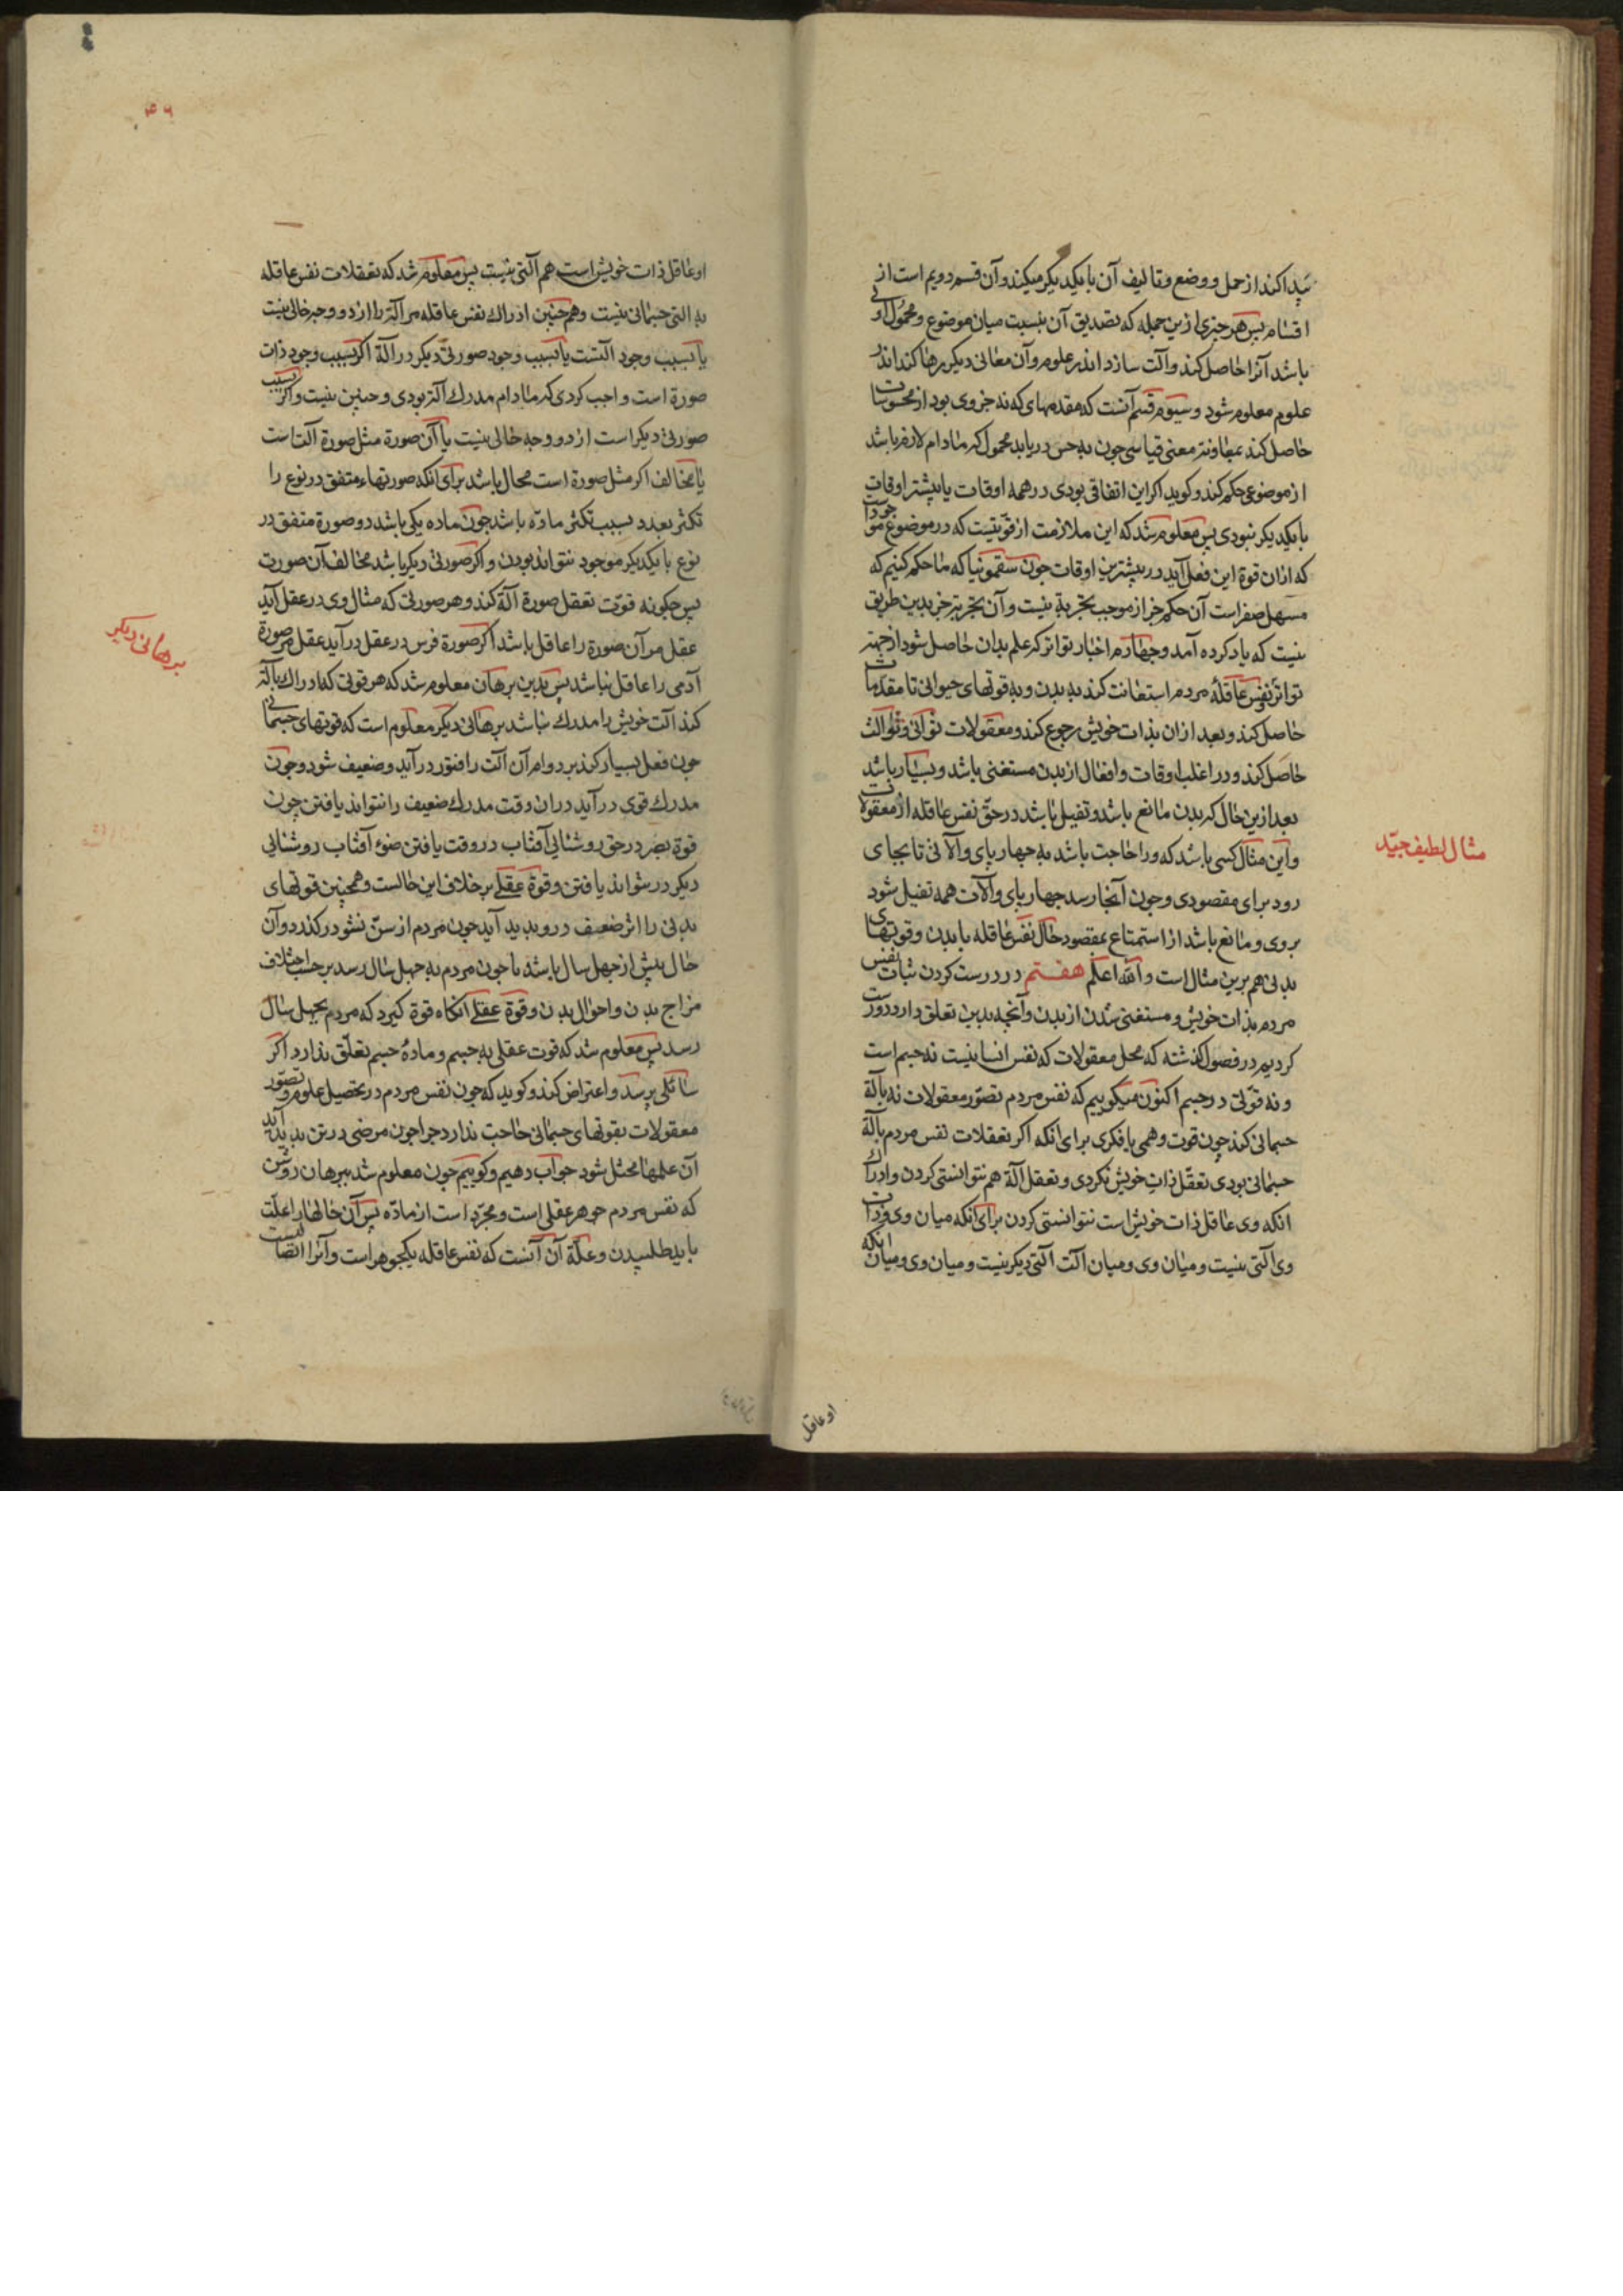 پیدا کند از حمل و وضع و تالیف آن با یکدیکر میکند و آن قسم دویم است از
اقسام پس هر جزی ازین جمله که تصدیق آن بنسبت میان موضوع و محمول اولی
باشد آنرا حاصل کند و آلت سازد اندر علوم و آن معانی دیکر برها کند اندر
علوم معلوم شود و سیوم قسم آنست که مقدمهای که نه جزوی بود از محسوسات
حاصل کند بمعاونت معنی قیاسی چون به حس دریابد محمول که مادام لازم باشد
از موضوعی حکم کند و کوید اکر این اتفاقی بودی در همه اوقات یا بیشتر اوقات
با یکدیکر نبودی پس معلوم شد که این ملازمت از قوتیست که در موضوع موجود
که ازان قوة این فعل آید در بیشترین اوقات چون سقمونیا که ما حکم کنیم که
مسهل صفراست آن حکم جز از موجب تجربة نیست و آن تجربة جز بدین طریق
نیست که یاد کرده آمد و چهارم اخبار تواتر که علم بدان حاصل شود از جهة
تواتر نفس عاقلهٔ مردم استعانت کند به بدن و به قوتهای حیوانی تا مقدمات
حاصل کند و بعد ازان بذات خویش رجوع کند و معقولات ثوانی و ثوالث
حاصل کند و در اغلب اوقات و افعال از بدن مستغنی باشد و بسیار باشد
بعد ازین حال که بدن مانع باشد و ثقیل باشد در حق نفس عاقله از معقولات
و این مثال کسی باشد که ورا حاجت باشد به چهارپای و آلاتی تا بجای
رود برای مقصودی و چون آنجا رسد چهارپای و آلات همه ثقیل شود
بروی و مانع باشد از استمتاع بمقصود حال نفس عاقله با بدن و قوتهای
بدنی هم برین مثال است و الله اعلم هفتم در درست کردن ثبات نفس
مردم بذات خویش و مستغنی شدن از بدن و آنچه بدین تعلق دارد درست
کردیم در فصول کذشته که محل معقولات که نفس انسانیست نه جسم است
و نه قوتی در جسم اکنون میکوییم که نفس مردم تصور معقولات نه بآلة
جسمانی کند چون قوت وهمی یا فکری برای انکه اکر تعقلات نفس مردم بآلة
جسمانی بودی تعقل ذات خویش نکردی و تعقل آلة هم نتوانستی کردن و ادراک
انکه وی عاقل ذات خویش است نتوانستی کردن برای انکه میان وی و ذات
وی آلتی نیست و میان وی و میان آلت آلتی دیکر نیست و میان وی و میان انکه
مثال لطیف جید
او عاقل
۴۶
او عاقل ذات خویش است هم آلتی نیست پس معلوم شد که تعقلات نفس عاقله
به آلتی جسمانی نیست و همچنین ادراک نفس عاقله مر آلة را از دو وجه خالی نیست
یا بسبب وجود آلتست یا بسبب وجود صورتی دیکر در آلة اکر بسبب وجود ذات
صورة است واجب کردی که مادام مدرک آلة بودی و چنین نیست و اکر بسبب
صورتی دیکر است از دو وجه خالی نیست یا آن صورة مثل صورة آلت است
یا مخالف اکر مثل صورة است محال باشد برای انکه صورتهاء متفق در نوع را
تکثر بعدد بسبب تکثر مادّه باشد چون ماده یکی باشد دو صورة متفق در
نوع با یکدیکر موجود نتواند بودن و اکر صورتی دیکر باشد مخالف آن صورت
پس چکونه قوت تعقل صورة آلة کند و هر صورتی که مثال وی در عقل آید
عقل مر آن صورة را عاقل باشد اکر صورة فرس در عقل در آید عقل مر صورة
آدمی را عاقل نباشد پس بدین برهان معلوم شد که هر قوتی که ادراک بآلة
کند آلت خویش را مدرک نباشد برهانی دیکر معلوم است که قوتهای جسمانی
چون فعل بسیار کند بر دوام آن آلت را فتور درآید و ضعیف شود و چون
مدرک قوی درآید دران وقت مدرک ضعیف را نتواند یافتن چون
قوة بصر در حق روشنایی آفتاب در وقت یافتن ضوء آفتاب روشنایی
دیکر در نتواند یافتن و قوة عقلی بر خلاف این حالست و همچنین قوتهای
بدنی را اثر ضعف درو پدید آید چون مردم از سن نشو درکذرد و آن
حال پیش از چهل سال باشد یا چون مردم به چهل سال رسد بر حسب اختلاف
مزاج بدن و احوال بدن و قوة عقلی انکاه قوة کیرد که مردم بچهل سال
رسد پس معلوم شد که قوت عقلی به جسم و مادهٔ جسم تعلق ندارد اکر
سائلی پرسد و اعتراض کند و کوید که چون نفس مردم در تحصیل علوم و تصور
معقولات بقوتهای جسمانی حاجت ندارد چرا چون مرضی در تن پدید آید
آن علمها مختل شود جواب دهیم و کوییم چون معلوم شد ببرهان روشن
که نفس مردم جوهر عقلی است و مجرد است از مادّه پس آن حالها را علت
باید طلبیدن و علة آن آنست که نفس عاقله یکجوهر است و آنرا
برهانی دیکر